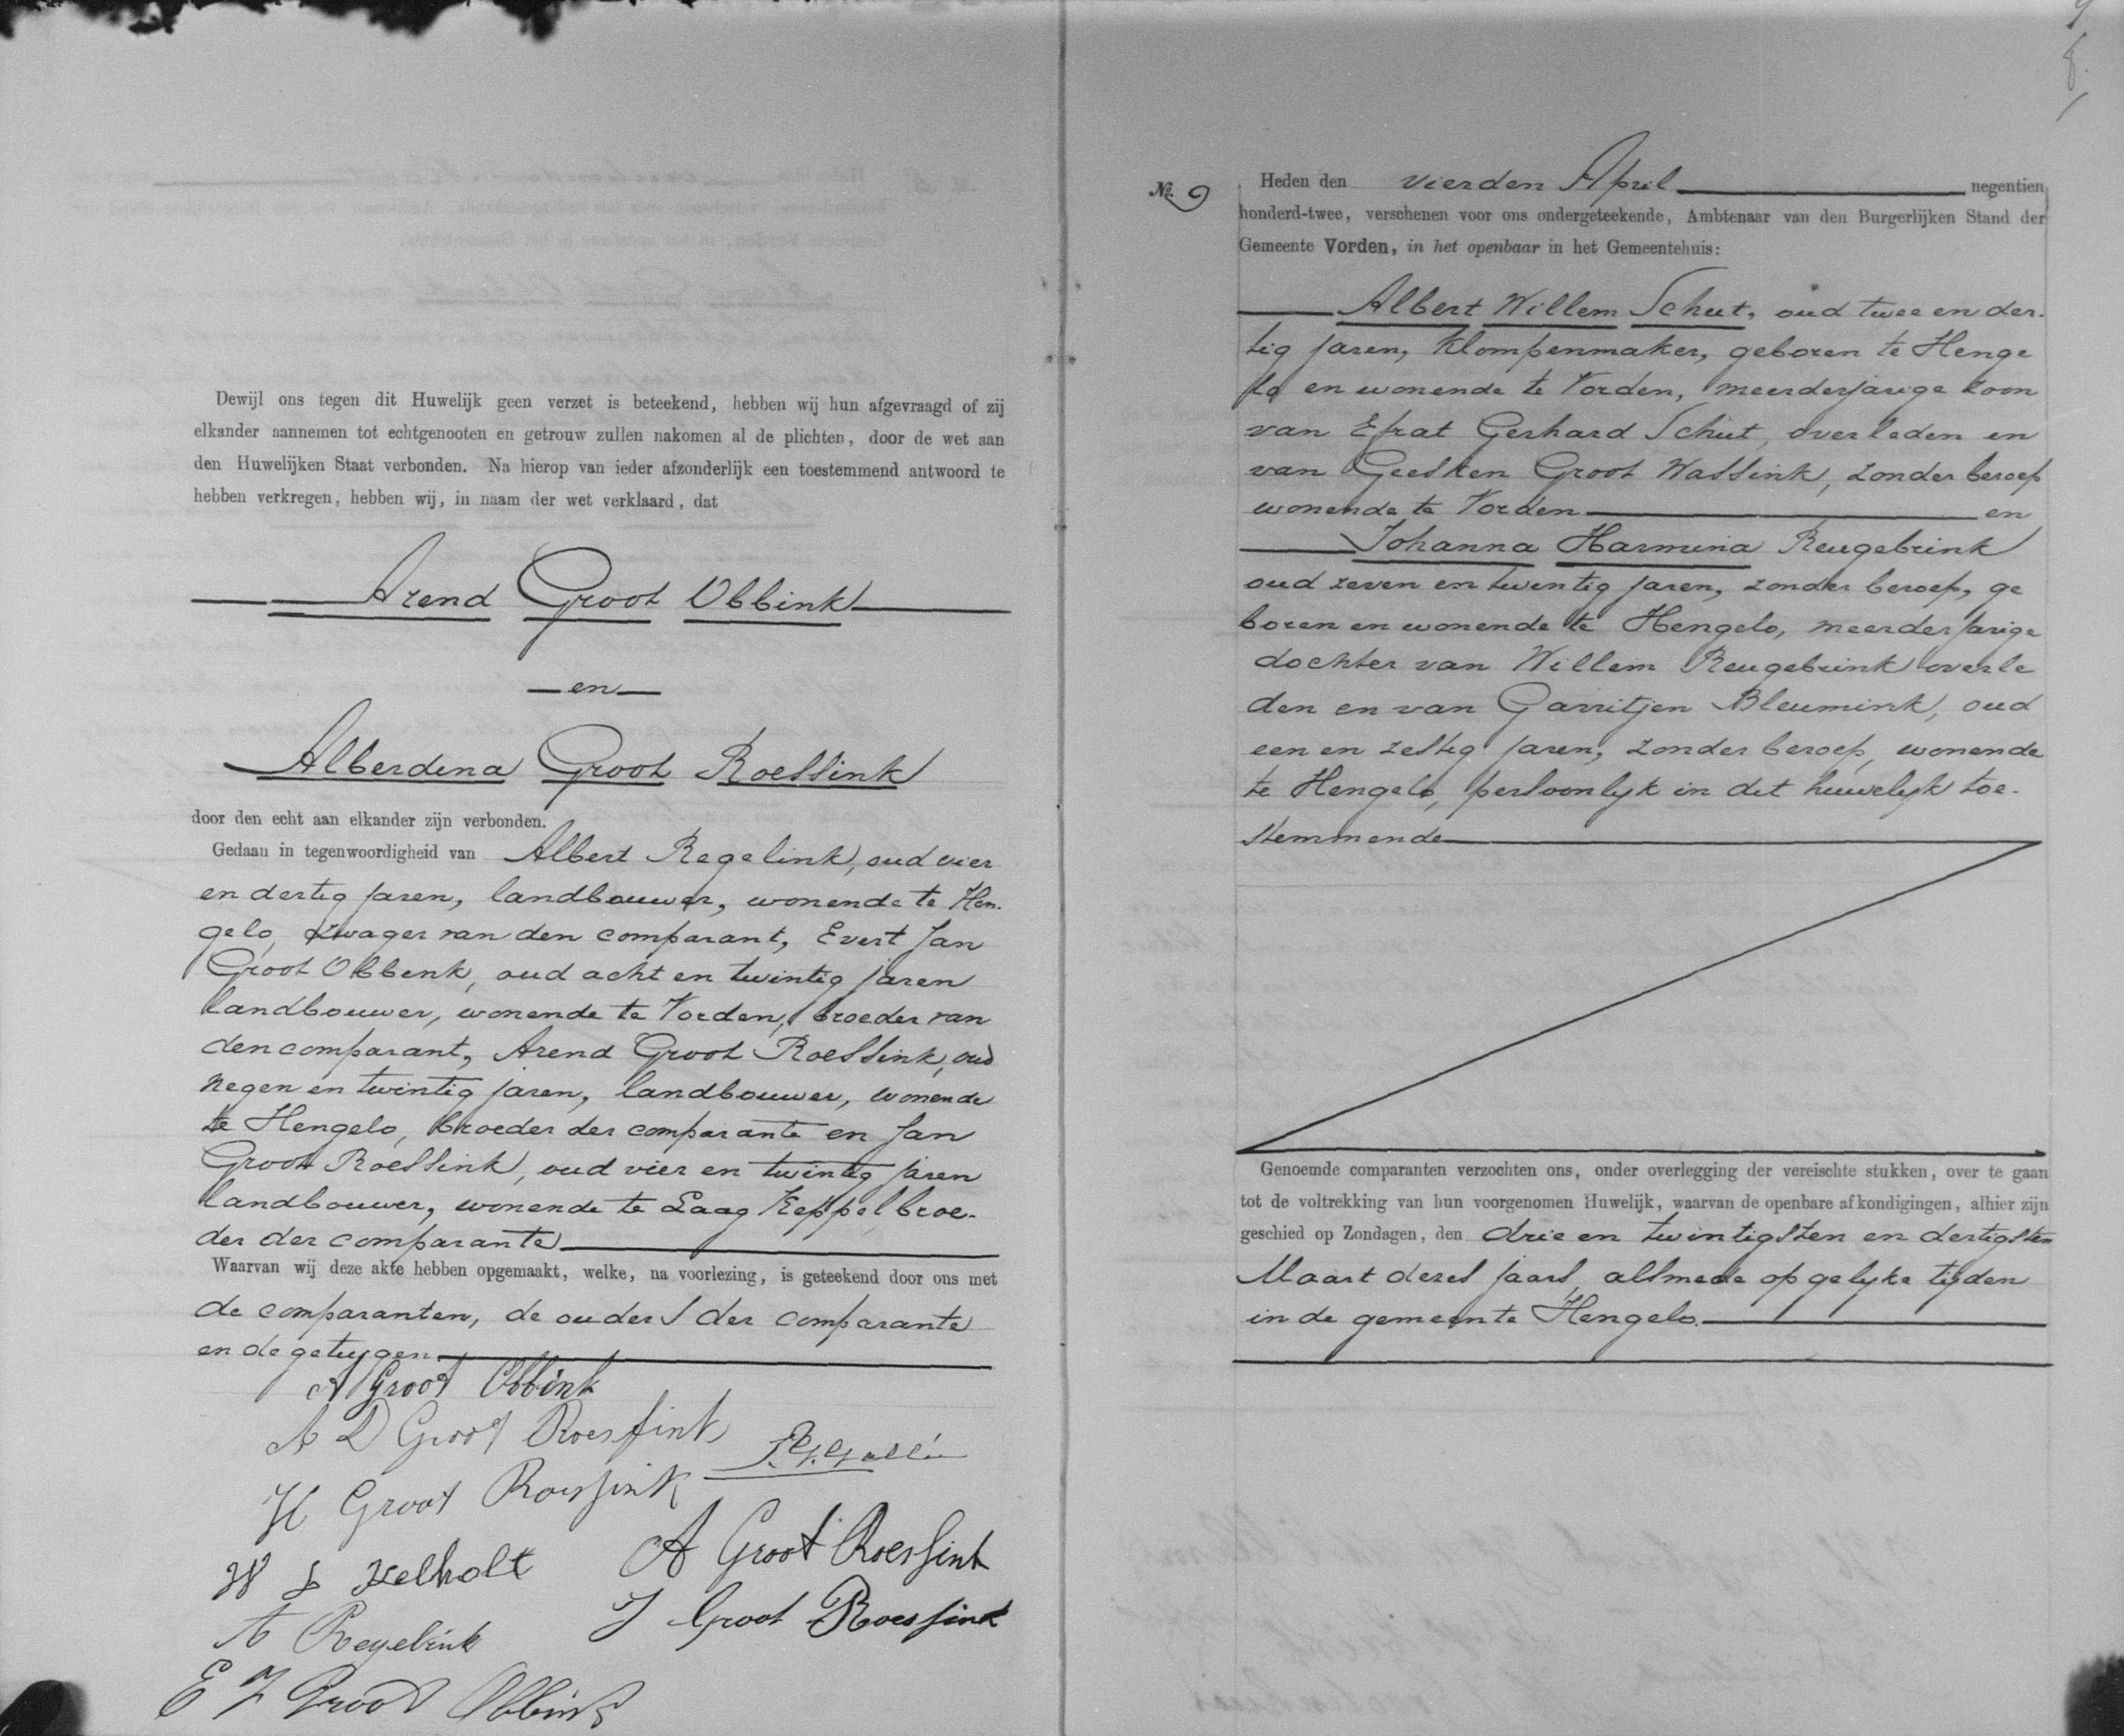 Dewijl ons tegen dit Huwelijk geen verzet is beteekend, hebben wij hun afgevraagd of zij
elkander aannemen tot echtgenooten en getrouw zullen nakomen al de plichten, door de wet aan
den Huwelijken Staat verbonden. Na hierop van ieder afzonderlijk een toestemmend antwoord te
hebben verkregen, hebben wij, in naam der wet verklaard, dat
Arend Groot Obbink
en
Alberdina Groot Roessink
door den echt aan elkander zijn verbonden.
Gedaan in tegenwoordigheid van Albert Regelink, oud vier
en dertig jaren, landbouwer, wonende te Hen-
gelo, zwager van den comparant, Evert Jan
Groot Obbink, oud acht en twintig jaren
landbouwer, wonende te Vorden, broeder van
den comparant, Arend Groot Roessink, oud
negen en twintig jaren, landbouwer, wonende
te Hengelo, broeder der comparante en Jan
Groot Roessink, oud vier en twintig jaren
landbouwer, wonende te Laag Keppel broe-
der der comparante
Waarvan wij deze akte hebben opgemaakt, welke, na voorlezing, is geteekend door ons met
de comparanten, de ouders der comparante
en de getuigen
A Groot Obbink
A D Groot Roessink
H Groot Roessink
A Groot Roessink
J Groot Roessink
A Regelink
E J Groot Obbink
No. 9
Heden den vierden April negentien
honderd-twee, verschenen voor ons ondergeteekende, Ambtenaar van den Burgerlijken Stand der
Gemeente Vorden, in het openbaar in het Gemeentehuis:
Albert Willem Schut, oud twee en der-
tig jaren, klompenmaker, geboren te Henge
lo en wonende te Vorden, meerderjarige zoon
van Efrat Gerhard Schut, overleden en
van Geesken Groot Wassink, zonder beroep
wonende te Vorden en
Johanna Harmina Reugebrink
oud zeven en twintig jaren, zonder beroep, ge
boren en wonende te Hengelo, meerderjarige
dochter van Willem Reugebrink overle
den en van Garritjen Bleumink, oud
een en zestig jaren, zonder beroep, wonende
te Hengelo, persoonlijk in dit huwelijk toe-
stemmende
Genoemde comparanten verzochten ons, onder overlegging der vereischte stukken, over te gaan
tot de voltrekking van hun voorgenomen Huwelijk, waarvan de openbare afkondigingen, alhier zijn
geschied op Zondagen, den drie en twintigsten en dertigsten
Maart dezes jaars, alsmede op gelijke tijden
in de gemeente Hengelo.